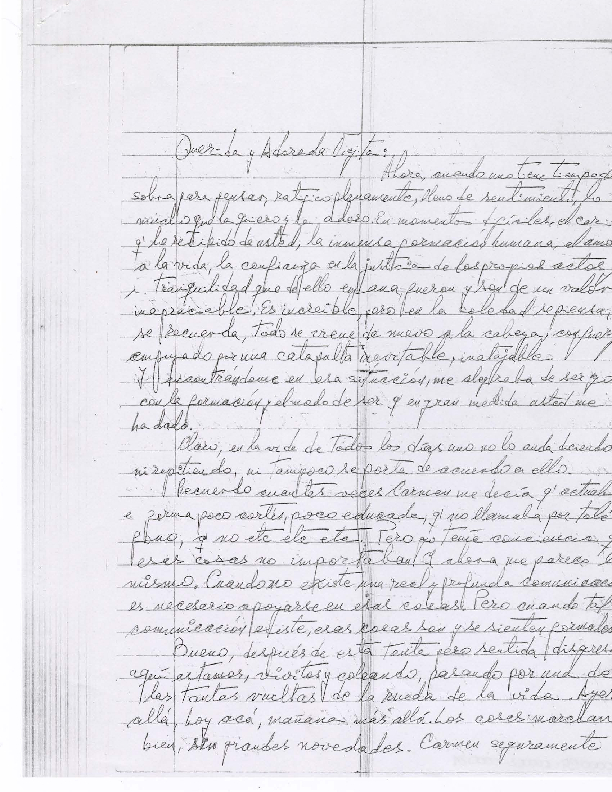 Querida y Adorada Vigita:
Ahora, cuando uno tiene tiempo de
sobra para pensar, ratifico plenamente, lleno de sentimiento, lo
mucho que la quiero y la adoro. En momentos difíciles, el car
q' he recibido de usted, la inmensa formación humana, el amo
a la vida, la confianza en la justicia de los propios actos
i tranquilidad que de ello emana fueron y son de un valor
inapreciable. Es increíble, pero en la soledad se piensa,
se recuerda, todo se viene de nuevo a la cabeza, como
empujado por una catapulta inevitable, inatajable.
Y encontrándome en esa situación, me alegraba de ser yo
con la formación y el modo de ser q' en gran medida usted me
ha dado.
Claro, en la vida de todos los días uno no lo anda diciendo
ni repitiendo, ni tampoco se porta de acuerdo a ello.
Recuerdo cuantas veces Carmen me decía q' actuaba
e forma poco cortés, poco educada, q' no llamaba por telé
fono, q' no etc etc etc. Pero yo tenía conciencia q'
esas cosas no importaban. Y ahora me parece lo
mismo. Cuando no existe una real y profunda comunicac
es necesario apoyarse en esas cosas. Pero cuando tal
comunicación existe, esas cosas son y se sienten formales
Bueno, después de esta tanta pero sentida disgres
aquí estamos, vivitos y coleando, pasando por una de
las tantas vueltas de la rueda de la vida. Ayer
allá, hoy acá, mañana más allá. Las cosas marchan
bien, sin grandes novedades. Carmen seguramente